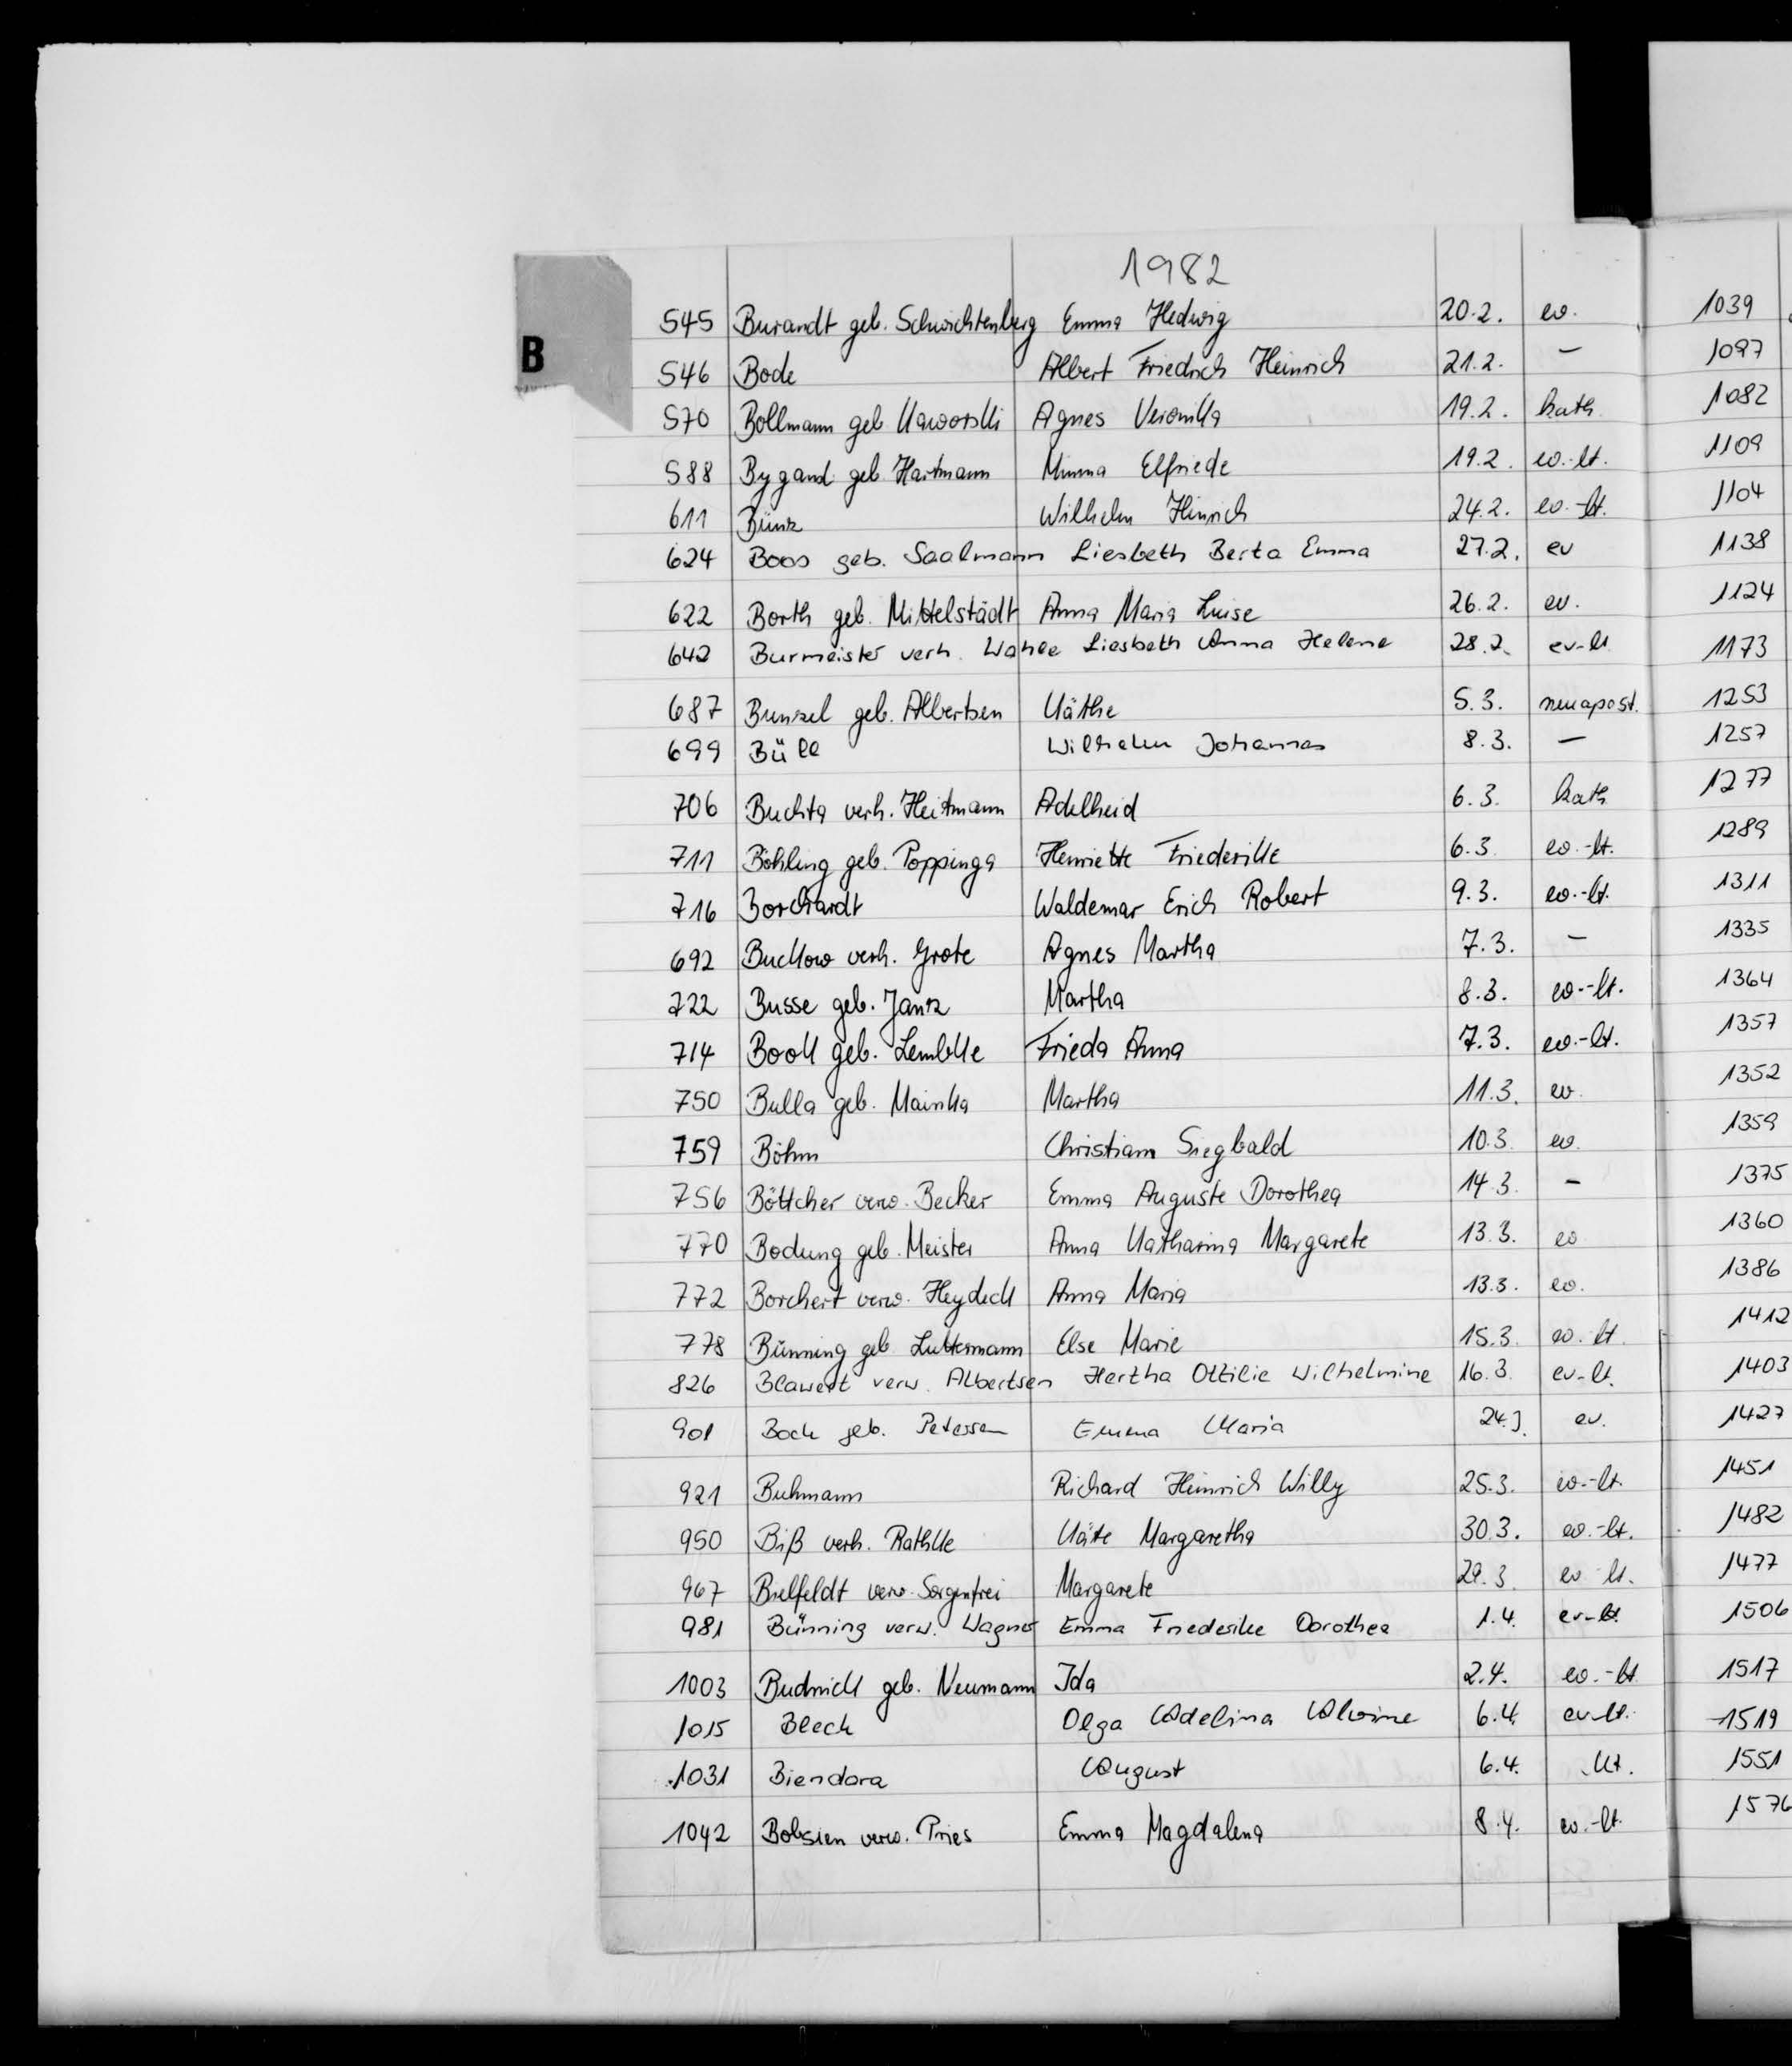 1982
B
545 Burandt geb. Schwichtenberg Emma Hedwig 20.2. ev.
546 Bode Albert Friedrich Heinrich 21.2. –
570 Bollmann geb. Kaworski Agnes Veronika 19.2. kath
588 Bygand geb. Hartmann Minna Elfriede 19.2. ev.-lt.
611 Bünz Wilhelm Hinrich 24.2. ev.-lt.
624 Boos geb. Saalmann Liesbeth Berta Emma 27.2. ev
622 Borth geb. Mittelstädt Anna Maria Luise 26.2. ev.
642 Burmeister verh. Liesbeth Anna Helene 28.2. ev-lt.
687 Bunzel geb. Albertsen Käthe 5.3. neuapost.
699 Büll Wilhelm Johannes 8.3. –
706 Buchta verh. Heitmann Adelheid 6.3. kath
711 Böhling geb. Poppinga Henriette Friederike 6.3. ev.-lt.
716 Borchardt Waldemar Erich Robert 9.3. ev.-lt.
692 Buckow verh. Grote Agnes Martha 7.3. –
722 Busse geb. Janz Martha 8.3. ev.-lt.
714 Book geb. Lembke Frieda Anna 7.3. ev.-lt.
750 Bulla geb. Mainka Martha 11.3. ev.
759 Böhm Christiam Siegbald 10.3. ev.
756 Böttcher verw. Becker Emma Auguste Dorothea 14.3. –
770 Bodung geb. Meister Anna Katharina Margarete 13.3. ev
772 Borchert verw. Heydeck Anna Maria 13.3. ev.
778 Bünning geb. Luttermann Else Marie 15.3. ev.-lt.
826 Blawert verw. Albertsen Hertha Ottilie Wilhelmine 16.3. ev-lt.
901 Bock geb. Petersen Emma Maria 24.3. ev.
921 Buhmann Richard Heinrich Willy 25.3. ev.-lt.
950 Biß verh. Rathke Käte Margaretha 30.3. ev.-lt.
967 Bielfeldt verw. Sorgenfrei Margarete 29.3. ev lt.
981 Bünning verw. Wagner Emma Friederike Dorothea 1.4. ev-lt.
1003 Budnick geb. Neumann Ida 2.4. ev.-lt
1015 Bleck Olga Adelina Alwine 6.4. ev-lt.
1031 Biendara August 6.4. kt.
1042 Bobsien verw. Pries Emma Magdalena 8.4. ev.-lt.
1039
1097
1082
1109
1104
1138
1124
1173
1253
1257
1277
1289
1311
1335
1364
1357
1352
1359
1375
1360
1386
1412
1403
1427
1451
1482
1477
1506
1517
1519
1551
1576